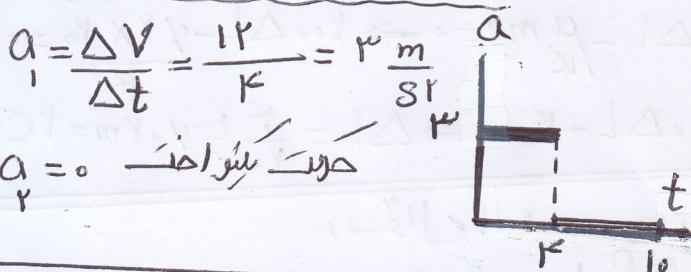 a₁ = ΔV / Δt = ۱۲ / ۴ = ۳ m / s۲
a₂ = ۰ حرکت یکنواخت
a
۳
t
۴ ۱۰